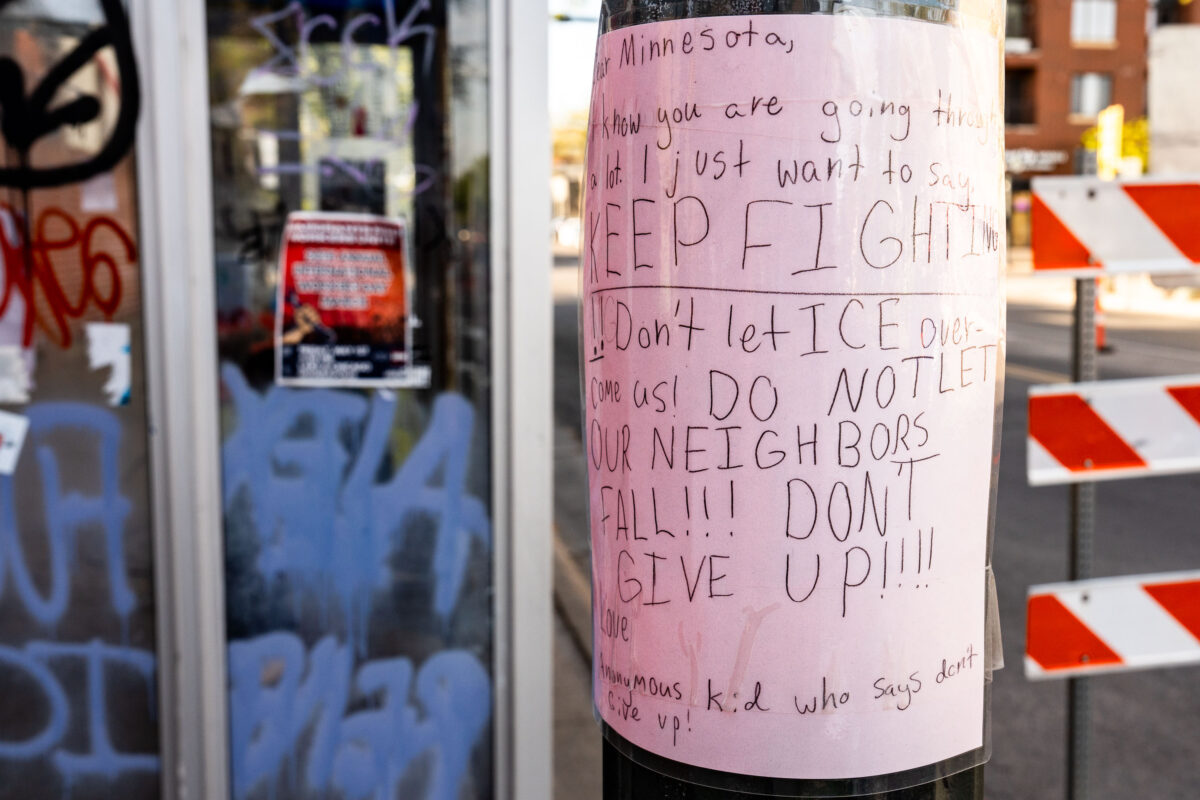 Minnesota,
know you are going through
a lot. I just want to say,
KEEP FIGHTING
!! Don't let ICE over-
come us! DO NOT LET
OUR NEIGHBORS
FALL!!! DON'T
GIVE UP!!!!
Love
Anonymous kid who says don't
Give up!